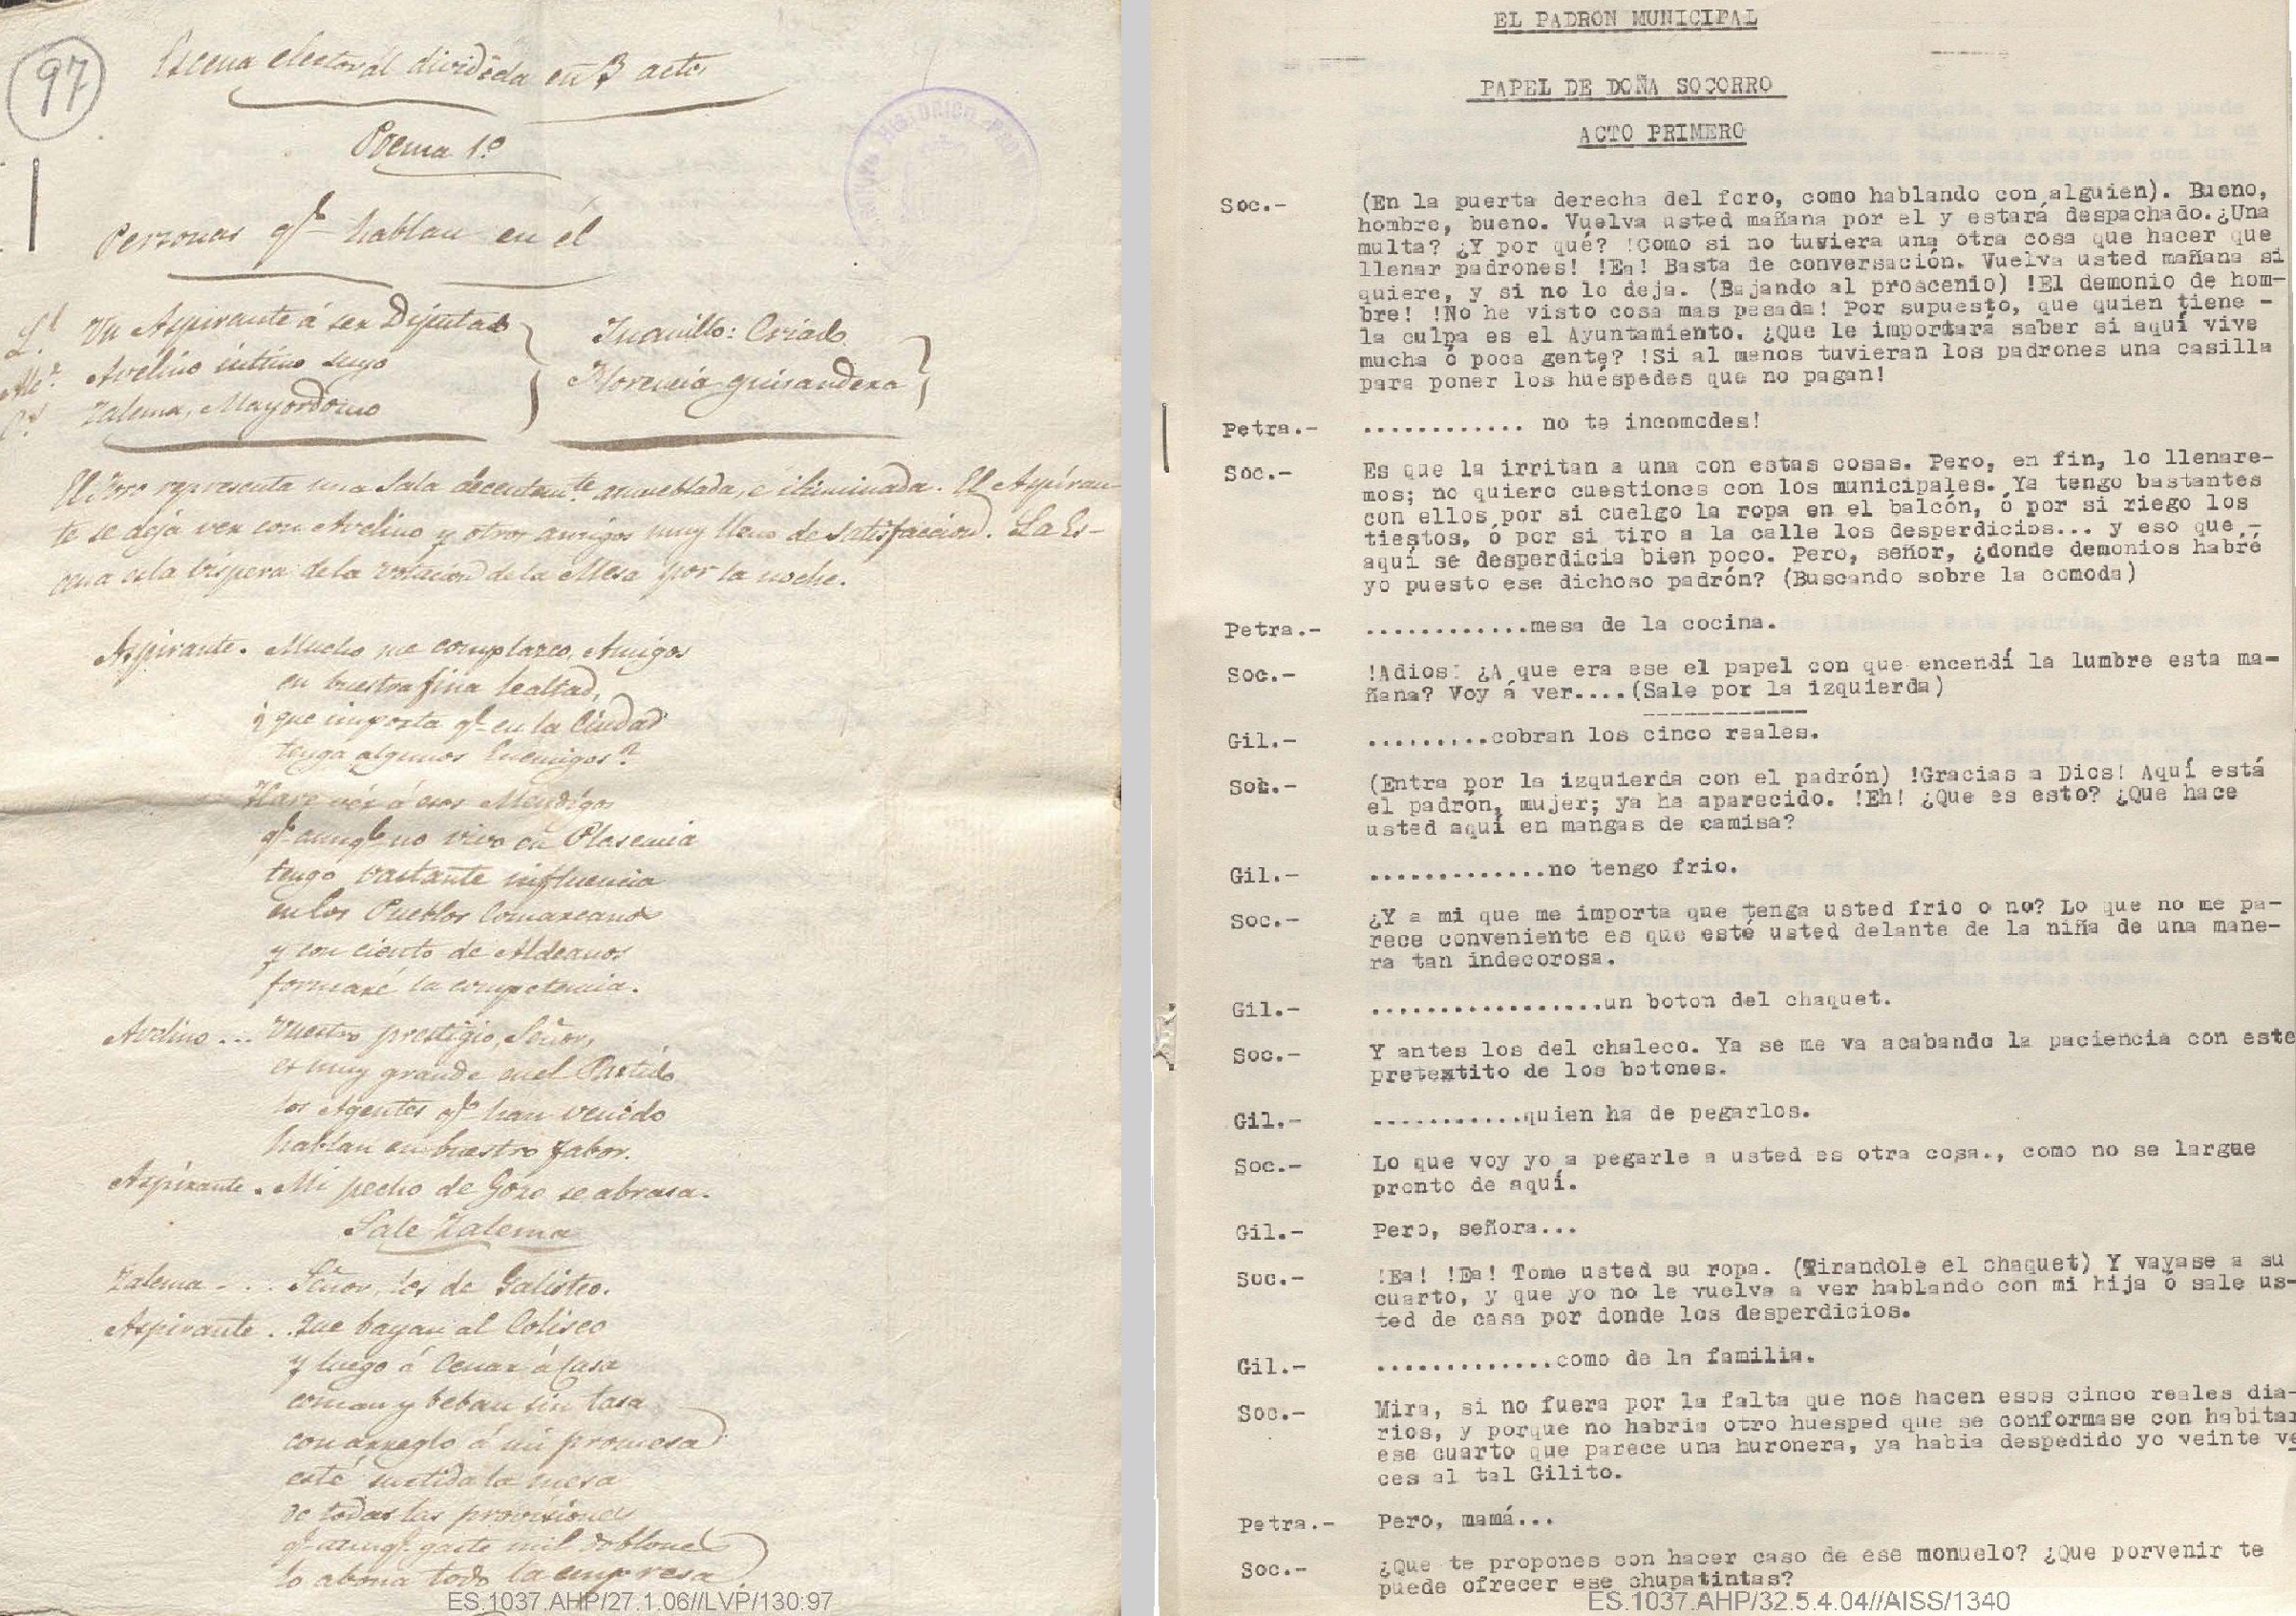 97
Escena electoral dividida en 3 actos
Poema 1º
Personas qe hablan en él
Un Aspirante á ser Diputado
Avelino intimo suyo
Zalema, Mayordomo
Juanillo: Criado
Florencia guisandera
El Foro representa una Sala decentemte amueblada, é iluminada. El Aspiran-
te se deja ver con Avelino y otros amigos muy lleno de satisfaccion. La Es-
cena es la bispera de la votacion de la Mesa por la noche.
Aspirante. Mucho me complazco, Amigos
en buestra fina lealtad,
¿que importa qe en la Ciudad
tenga algunos Enemigos?
Hare ver á esos Mendigos
qe aunqe no vivo en Plasencia
tengo bastante influencia
en los Pueblos Comarcanos
y con ciento de Aldeanos
formaré la competencia.
Avelino... Vuestro prestigio, Señor,
es muy grande en el Partido
los Agentes qe han venido
hablan en buestro fabor.
Aspirante. Mi pecho de Gozo se abrasa.
Sale Zalema
Zalema... Señor, los de Galisteo.
Aspirante.. Que bayan al Coliseo
y luego á Cenar á Casa
coman y beban sin tasa
con arreglo á mi promesa
esté surtida la mesa
de todas las provisiones
qe aunqe gaste mil doblones
lo abona todo la empresa.
ES.1037.AHP/27.1.06//LVP/130:97
EL PADRON MUNICIPAL
PAPEL DE DOÑA SOCORRO
ACTO PRIMERO
Soc.- (En la puerta derecha del foro, como hablando con alguien). Bueno,
hombre, bueno. Vuelva usted mañana por el y estará despachado.¿Una
multa? ¿Y por qué? !Como si no tuviera una otra cosa que hacer que
llenar padrones! !Ea! Basta de conversación. Vuelva usted mañana si
quiere, y si no lo deja. (Bajando al proscenio) !El demonio de hom-
bre! !No he visto cosa mas pesada! Por supuesto, que quien tiene -
la culpa es el Ayuntamiento. ¿Que le importará saber si aquí vive
mucha ó poca gente? !Si al menos tuvieran los padrones una casilla
para poner los huéspedes que no pagan!
Petra.- ............ no te incomodes!
Soc.- Es que la irritan a una con estas cosas. Pero, en fin, lo llenare-
mos; no quiero cuestiones con los municipales. Ya tengo bastantes
con ellos por si cuelgo la ropa en el balcón, ó por si riego los
tiestos, ó por si tiro a la calle los desperdicios... y eso que -
aquí se desperdicia bien poco. Pero, señor, ¿donde demonios habré
yo puesto ese dichoso padrón? (Buscando sobre la comoda)
Petra.- ............mesa de la cocina.
Soc.- !Adios! ¿A que era ese el papel con que encendí la lumbre esta ma-
ñana? Voy á ver....(Sale por la izquierda)
Gil.- .........cobran los cinco reales.
Soc.- (Entra por la izquierda con el padrón) !Gracias a Dios! Aquí está
el padrón, mujer; ya ha aparecido. !Eh! ¿Que es esto? ¿Que hace
usted aquí en mangas de camisa?
Gil.- .............no tengo frio.
Soc.- ¿Y a mi que me importa que tenga usted frio o no? Lo que no me pa-
rece conveniente es que esté usted delante de la niña de una mane-
ra tan indecorosa.
Gil.- .................un boton del chaquet.
Soc.- Y antes los del chaleco. Ya se me va acabando la paciencia con este
pretextito de los botones.
Gil.- ...........quien ha de pegarlos.
Soc.- Lo que voy yo a pegarle a usted es otra cosa., como no se largue
pronto de aquí.
Gil.- Pero, señora...
Soc.- !Ea! !Ea! Tome usted su ropa. (Tirandole el chaquet) Y vayase a su
cuarto, y que yo no le vuelva a ver hablando con mi hija ó sale us-
ted de casa por donde los desperdicios.
Gil.- .............como de la familia.
Soc.- Mira, si no fuera por la falta que nos hacen esos cinco reales dia-
rios, y porque no habria otro huesped que se conformase con habitar
ese cuarto que parece una huronera, ya habia despedido yo veinte ve
ces al tal Gilito.
Petra.- Pero, mamá...
Soc.- ¿Que te propones con hacer caso de ese monuelo? ¿Que porvenir te
puede ofrecer ese chupatintas?
ES.1037.AHP/32.5.4.04//AISS/1340